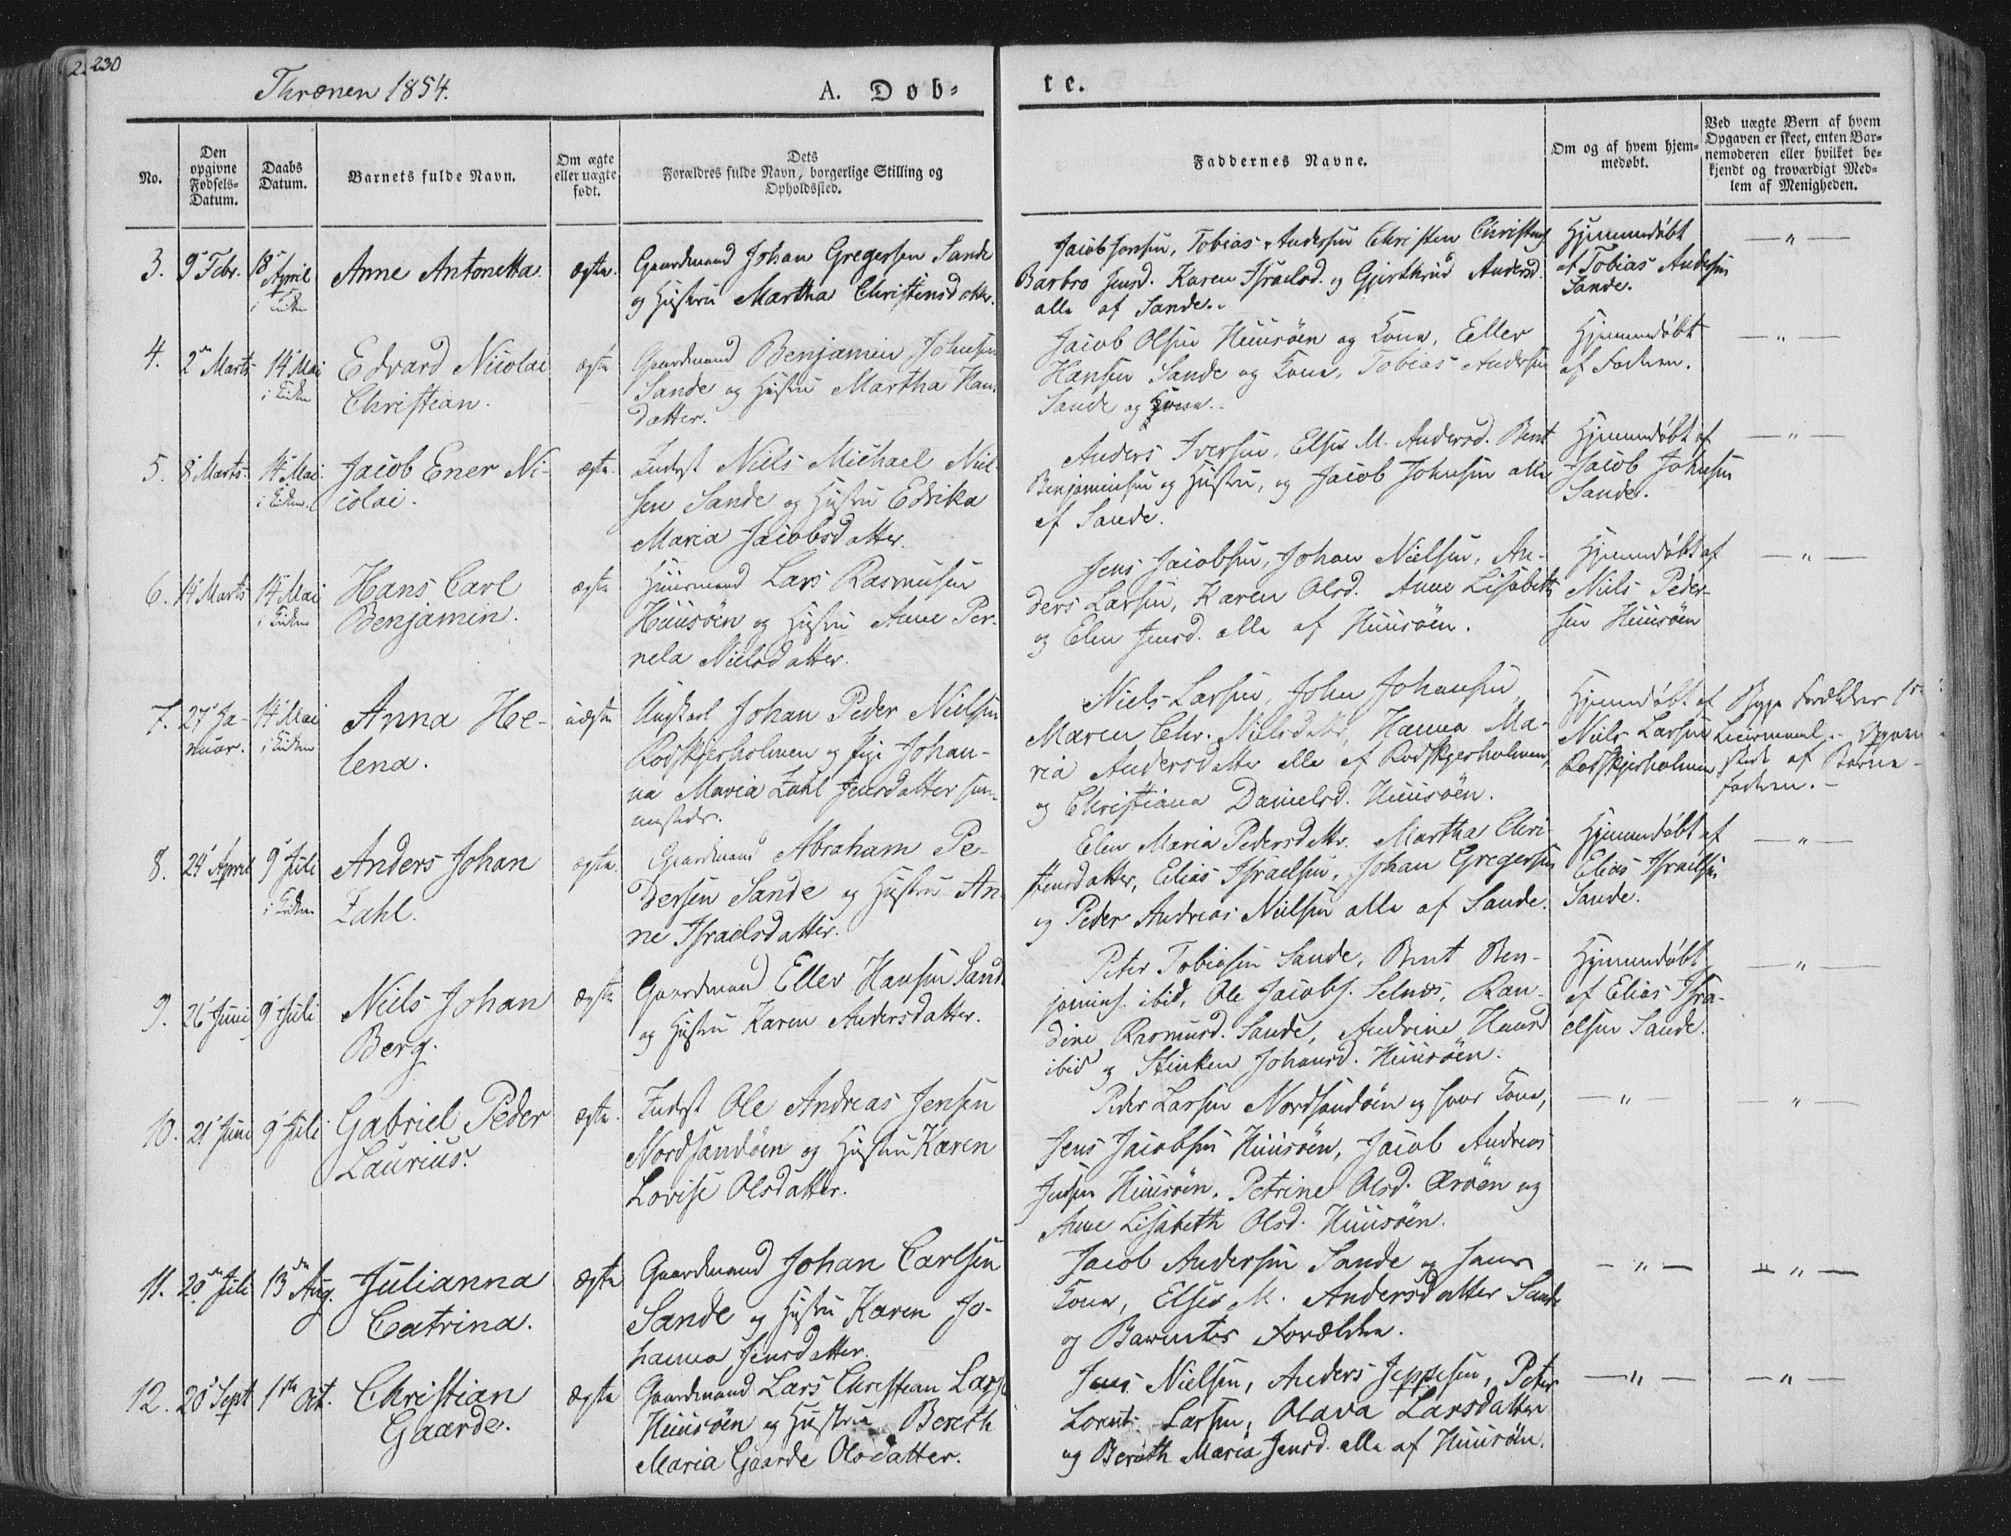 230
Thrænen 1854.
A. Døb=
te.
No.
Den opgivne Fødsels-Datum.
Daabs Datum.
Barnets fulde Navn.
Om ægte eller uægte født.
Dets Forældres fulde Navn, borgerlige Stilling og Opholdssted.
Faddernes Navne.
Om og af hvem hjem-medøbt.
Ved uægte Børn af hvem Opgaven er skeet, enten Bar=nemoderen eller hvilket be=kjendt og troværdigt Med=lem af Menigheden.
3. 9 Febr. 18 April i Kirken Anne Antonetta. ægte.
Gaardmand Johan Gregersen Sande
og Hustru Martha Christensdatter.
Jacob Jonsen, Tobias Andersen Christen Christens.
Barbro Jensd. Karen Israelsd. og Gjerthrud Andersd.
alle af Sande.
Hjemmedøbt
af Tobias Andersen
Sande.
4. 2 Marts 14 Mai i Kirken Edvard Nicolai
Christian.
ægte
Gaardmand Benjamin Johnsen
Sande og Hustru Martha Hans
datter.
Jacob Olsen Huusøen og Kone, Eller
Hansen Sande og Kone, Tobias Andersen
Sande og Kone.
Hjemmedøbt
af Faderen.
5. 8 Marts 14 Mai i Kirken Jacob Ener Ni-
colai.
ægte.
Inderst Niels Michael Niel-
sen Sande og Hustru Edrika
Maria Jacobsdatter.
Anders Iversen, Elser M. Andersd. Bent
Benjaminsen og Hustru, og Jacob Johnsen alle
af Sande.
Hjemmedøbt af
Jacob Johnsen
Sande.
6. 14 Marts 14 Mai i Kirken Hans Carl
Benjamin.
ægte
Huusmand Lars Rasmusen
Huusøen og Hustru Anne Per-
nela Nielsdatter.
Jens Jacobsen, Johan Nielsen, An-
ders Larsen, Karen Olsd. Anne Lisabeth
og Elen Jensd. alle af Huusøen.
Hjemmedøbt af
Niels Peder-
sen Huusøen
7. 27 Ja-
nuar.
14 Mai i Kirken Anna He-
lena.
uægte
Ungkarl Johan Peder Nielsen
Rodskjerholmen og Pige Johan-
na Maria Zahl Jensdatter sam-
mesteds.
Niels Larsen, John Johansen,
Maren Chr. Nielsdatr, Hanna Ma-
ria Andersdatter alle af Rodskjerholmen,
og Christiana Danielsd. Huusøen.
Hjemmedøbt af
Niels Larsen
Rodskjerholmen
Begge Forældres
Leiermaal. Opgaven
skeet af Barne-
faderen.
8. 24 April 9 Juli i Kirken Anders Johan
Zahl.
ægte.
Gaardmand Abraham Pe-
dersen Sande og Hustru An-
ne Israelsdatter.
Elen Maria Pedersdatr. Martha Chri-
stensdatter, Elias Israelsen, Johan Gregersen
og Peder Andreas Nielsen alle af Sande.
Hjemmedøbt af
Elias Israelsen
Sande.
9. 26 Juni 9 Juli Niels Johan
Berg.
ægte
Gaardmand Eller Hansen Sande
og Hustru Karen Andersdatter.
Peter Tobiasen Sande, Bent Ben-
jamins. ibid, Ole Jacobs. Selnæs, Ran-
dine Rasmusd. Sande, Andrine Hansd
ibid og Stinken Johansd. Huusøen.
Hjemmedøbt
af Elias Isra-
elsen Sande.
10. 21 Juni 9 Juli Gabriel Peder
Laurius.
ægte.
Inderst Ole Andreas Jensen
Nordsandøen og Hustru Karen
Lovise Olsdatter.
Peder Larsen Nordsandøen og hans Kone,
Jens Jacobsen Huusøen, Jacob Andreas
Jensen Huusøen. Petrine Olsd. Ørøen og
Anne Lisabeth Olsd. Huusøen.
11. 20 Juli 13 Aug. Julianna
Catrina.
ægte
Gaardmand Johan Carlsen
Sande og Hustru Karen Jo-
hanna Jensdatter.
Jacob Andersen Sande og hans
Kone, Elser M. Andersdatter Sande
og Barnets Forældre.
12. 20 Sept 1 Oct. Christian
Gaarde.
ægte
Gaardmand Lars Christian Lars.
Huusøen og Hustru Bereth
Maria Gaarde Olsdatter.
Jens Nielsen, Anders Jeppesen, Peter
Lorents Larsen, Olava Larsdatter
og Bereth Maria Jensd. alle af Huusøen.